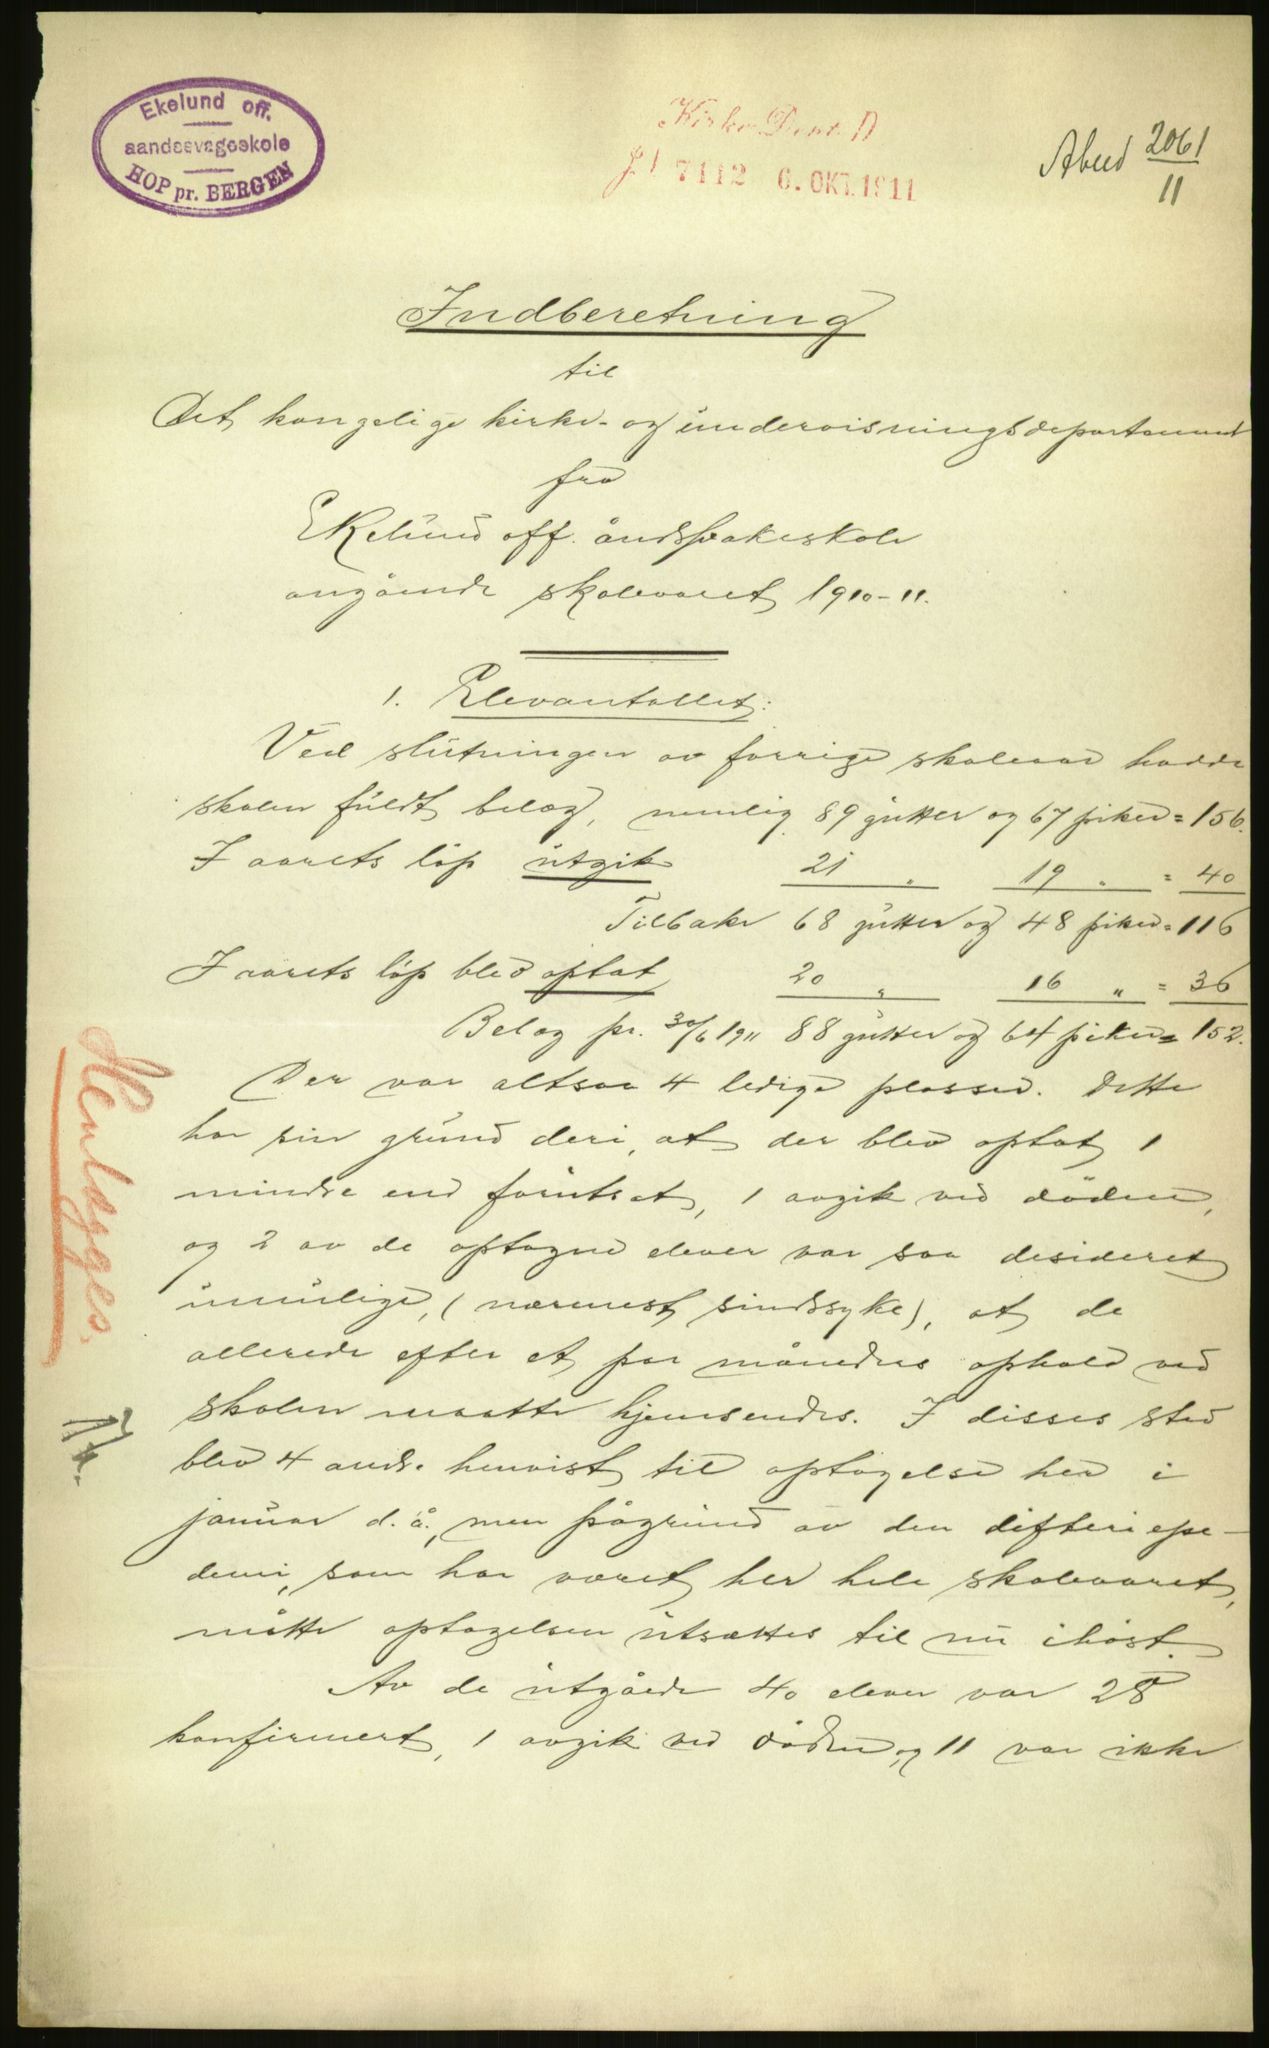 Ekelund off.
aandssvageskole
HOP pr. BERGEN
Kirke Dept. D
Jl 7112 6. OKT. 1911
Abud 2061
11
Indberetning
til
Det kongelige kirke- og undervisningsdepartement
fra
Ekelund off. åndssvakeskole
angående skoleaaret 1910-11.
1. Elevantallet:
Ved slutningen av forrige skoleaar hadde
skolen fuldt belæg, nemlig 89 gutter og 67 piker = 156.
I aarets løp utgik 21 " 19 " = 40
Tilbake 68 gutter og 48 piker = 116
I aarets løp blev optat 20 " 16 " = 36
Belæg pr. 30/6 1911 88 gutter og 64 piker = 152.
Der var altsaa 4 ledige plasser. Dette
har sin grund deri, at der blev optat 1
mindre end forutsat, 1 avgik ved döden,
og 2 av de optagne elever var saa desideret
umulige, (nærmest sindssyke), at de
allerede efter et par måneders ophold ved
skolen maatte hjemsendes. I disses sted
blev 4 andre henvist til optagelse her i
januar d. å., men pågrund av den difteriepe-
demi, som har været her hele skoleaaret,
måtte optagelsen utsættes til nu ihöst.
Av de utgåede 40 elever var 28
konfirmert, 1 avgik ved döden, og 11 var ikke
Henlægges.